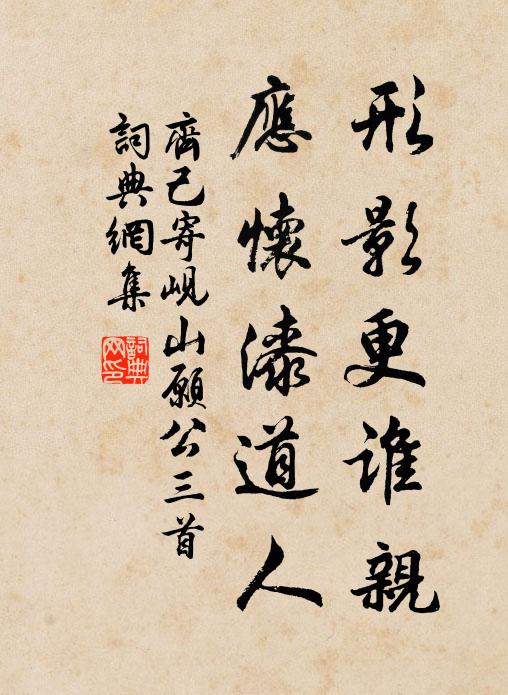 形影更誰親
應懷漆道人
齊己寄峴山願公三首
詞典網集
詞典网印